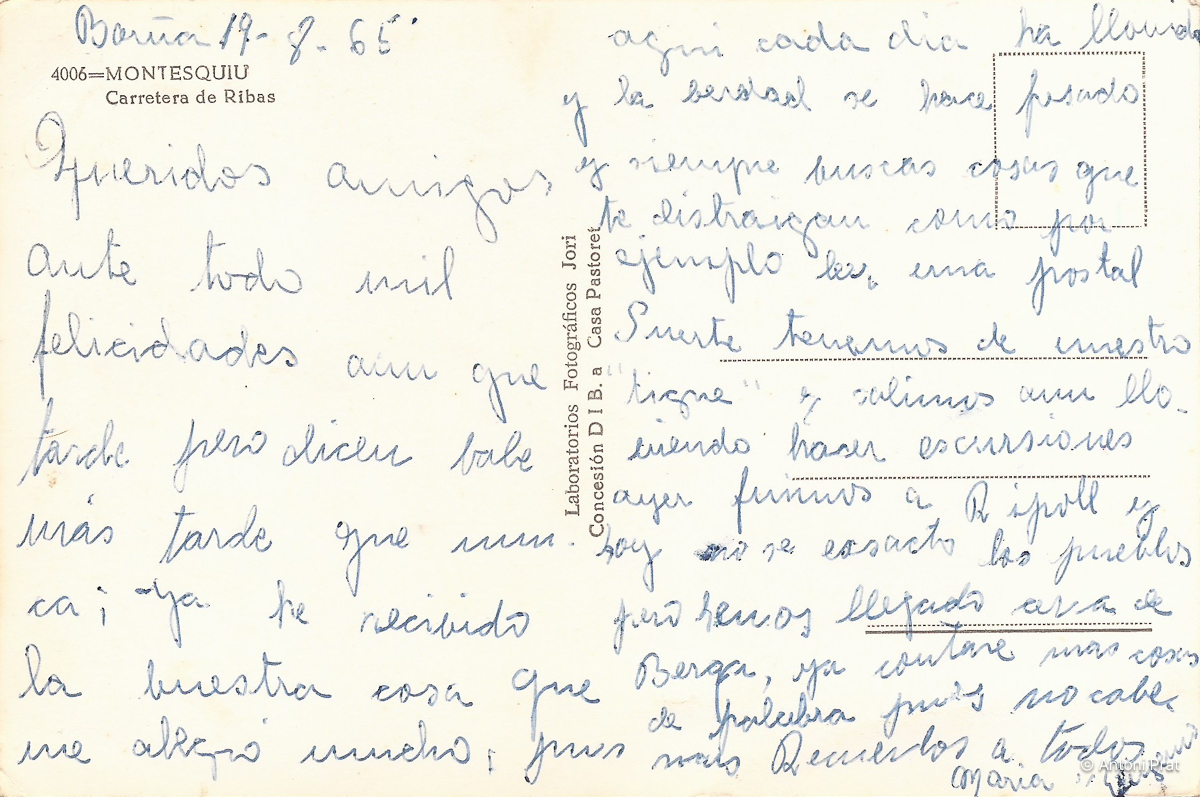 Borña 19-8-65
4006=MONTESQUIU
Carretera de Ribas
Queridos amigos
ante todo mil
felicidades aun que
tarde pero dicen bale
más tarde que nun-
ca¡ Ya he recibido
la buestra cosa que
me alegró mucho¡ pues
Laboratorios Fotográficos Jori
Concesión D I B. a Casa Pastoret
aqui cada dia ha llovido
y la berdad se hace pesado
y siempre buscas cosas que
te distraigan como por
ejemplo una postal
Suerte tenemos de nuestro
"tigre" y salimos aun llo-
viendo haser escursiones
ayer fuimos a Ripoll y
hoy no se exsacto los pueblos
pero hemos llegado cerca de
Berga, ya contare mas cosas
de palabra pues no cabe
mas Recuerdos a todos
Maria
© Antoni Prat